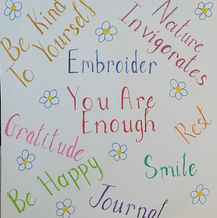 Be Kind
To Yourself
Nature
Invigorates
Embroider
You Are
Enough
Gratitude
Rest
Be Happy
Smile
Journal